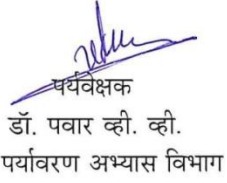 पर्यवेक्षक
डॉ. पवार व्ही. व्ही.
पर्यावरण अभ्यास विभाग